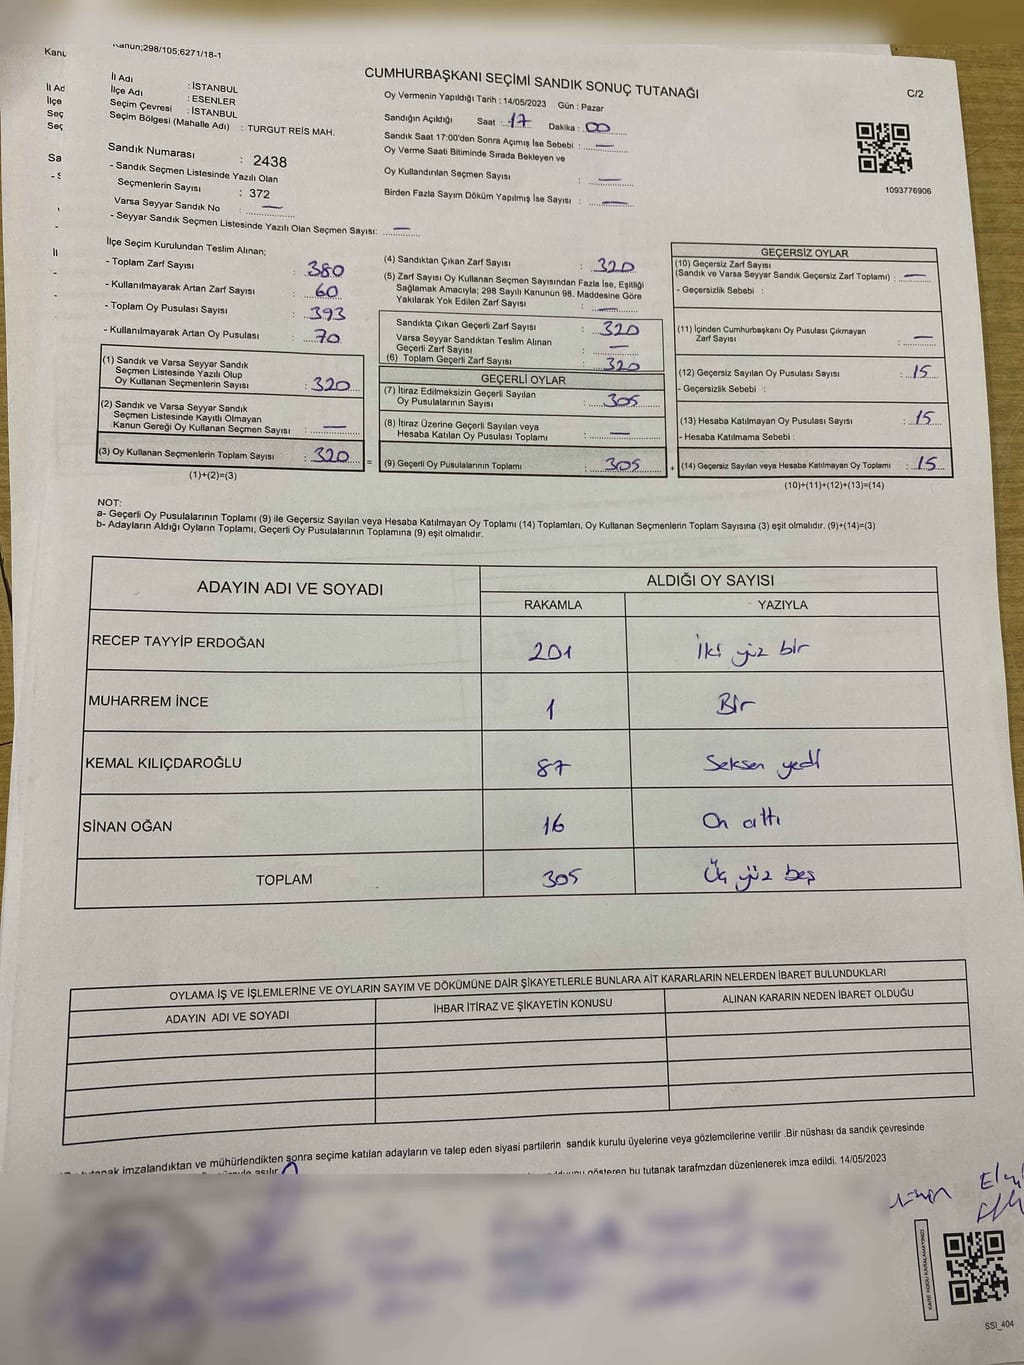 Kanun;298/105;6271/18-1
CUMHURBAŞKANI SEÇİMİ SANDIK SONUÇ TUTANAĞI
C/2
İl Adı : İSTANBUL
İlçe Adı : ESENLER
Seçim Çevresi : İSTANBUL
Seçim Bölgesi (Mahalle Adı) : TURGUT REİS MAH.
Sandık Numarası : 2438
- Sandık Seçmen Listesinde Yazılı Olan
Seçmenlerin Sayısı : 372
Varsa Seyyar Sandık No —
- Seyyar Sandık Seçmen Listesinde Yazılı Olan Seçmen Sayısı: —
Oy Vermenin Yapıldığı Tarih : 14/05/2023 Gün : Pazar
Sandığın Açıldığı Saat : 17 Dakika : 00
Sandık Saat 17:00'den Sonra Açımış İse Sebebi : —
Oy Verme Saati Bitiminde Sırada Bekleyen ve
Oy Kullandırılan Seçmen Sayısı : —
Birden Fazla Sayım Döküm Yapılmış İse Sayısı : —
1093776906
İlçe Seçim Kurulundan Teslim Alınan;
- Toplam Zarf Sayısı : 380
- Kullanılmayarak Artan Zarf Sayısı : 60
- Toplam Oy Pusulası Sayısı : 393
- Kullanılmayarak Artan Oy Pusulası : 70
(1) Sandık ve Varsa Seyyar Sandık
Seçmen Listesinde Yazılı Olup
Oy Kullanan Seçmenlerin Sayısı : 320
(2) Sandık ve Varsa Seyyar Sandık
Seçmen Listesinde Kayıtlı Olmayan
Kanun Gereği Oy Kullanan Seçmen Sayısı : —
(3) Oy Kullanan Seçmenlerin Toplam Sayısı : 320
(1)+(2)=(3)
(4) Sandıktan Çıkan Zarf Sayısı : 320
(5) Zarf Sayısı Oy Kullanan Seçmen Sayısından Fazla İse, Eşitliği
Sağlamak Amacıyla; 298 Sayılı Kanunun 98. Maddesine Göre
Yakılarak Yok Edilen Zarf Sayısı : —
Sandıkta Çıkan Geçerli Zarf Sayısı : 320
Varsa Seyyar Sandıktan Teslim Alınan
Geçerli Zarf Sayısı : —
(6) Toplam Geçerli Zarf Sayısı : 320
GEÇERLİ OYLAR
(7) İtiraz Edilmeksizin Geçerli Sayılan
Oy Pusulalarının Sayısı : 305
(8) İtiraz Üzerine Geçerli Sayılan veya
Hesaba Katılan Oy Pusulası Toplamı : —
= (9) Geçerli Oy Pusulalarının Toplamı : 305
GEÇERSİZ OYLAR
(10) Geçersiz Zarf Sayısı
(Sandık ve Varsa Seyyar Sandık Geçersiz Zarf Toplamı) : —
- Geçersizlik Sebebi :
(11) İçinden Cumhurbaşkanı Oy Pusulası Çıkmayan
Zarf Sayısı : —
(12) Geçersiz Sayılan Oy Pusulası Sayısı : 15
- Geçersizlik Sebebi :
(13) Hesaba Katılmayan Oy Pusulası Sayısı : 15
- Hesaba Katılmama Sebebi :
+ (14) Geçersiz Sayılan veya Hesaba Katılmayan Oy Toplamı : 15
(10)+(11)+(12)+(13)=(14)
NOT:
a- Geçerli Oy Pusulalarının Toplamı (9) ile Geçersiz Sayılan veya Hesaba Katılmayan Oy Toplamı (14) Toplamları, Oy Kullanan Seçmenlerin Toplam Sayısına (3) eşit olmalıdır. (9)+(14)=(3)
b- Adayların Aldığı Oyların Toplamı, Geçerli Oy Pusulalarının Toplamına (9) eşit olmalıdır.
ADAYIN ADI VE SOYADI ALDIĞI OY SAYISI
RAKAMLA YAZIYLA
RECEP TAYYİP ERDOĞAN 201 İki yüz bir
MUHARREM İNCE 1 Bir
KEMAL KILIÇDAROĞLU 87 Seksen yedi
SİNAN OĞAN 16 On altı
TOPLAM 305 Üç yüz beş
OYLAMA İŞ VE İŞLEMLERİNE VE OYLARIN SAYIM VE DÖKÜMÜNE DAİR ŞİKAYETLERLE BUNLARA AİT KARARLARIN NELERDEN İBARET BULUNDUKLARI
ADAYIN ADI VE SOYADI İHBAR İTİRAZ VE ŞİKAYETİN KONUSU ALINAN KARARIN NEDEN İBARET OLDUĞU
tutanak imzalandıktan ve mühürlendikten sonra seçime katılan adayların ve talep eden siyasi partilerin sandık kurulu üyelerine veya gözlemcilerine verilir .Bir nüshası da sandık çevresinde
asılır
gösteren bu tutanak tarafmzdan düzenlenerek imza edildi. 14/05/2023
KARE KODU KARALAMAYINIZ!
SSI_404